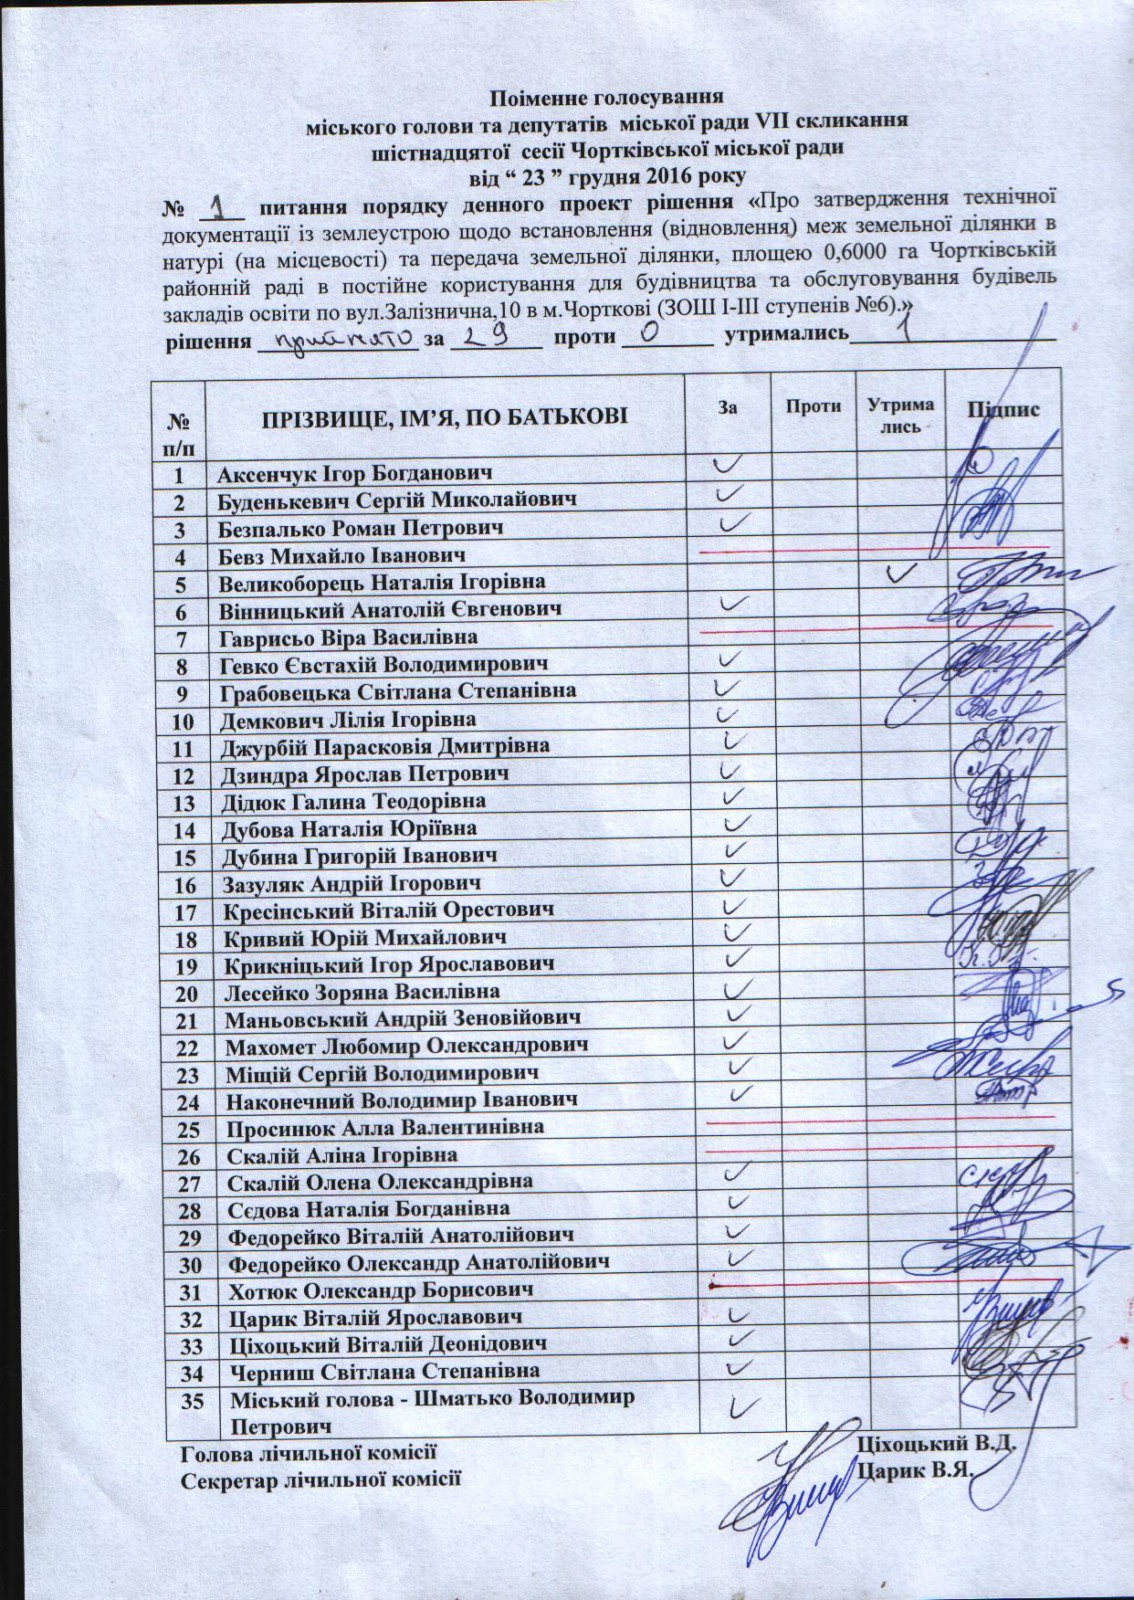 Поіменне голосування
міського голови та депутатів міської ради VII скликання
шістнадцятої сесії Чортківської міської ради
від “ 23 ” грудня 2016 року
№ 1 питання порядку денного проект рішення «Про затвердження технічної
документації із землеустрою щодо встановлення (відновлення) меж земельної ділянки в
натурі (на місцевості) та передача земельної ділянки, площею 0,6000 га Чортківській
районній раді в постійне користування для будівництва та обслуговування будівель
закладів освіти по вул.Залізнична,10 в м.Чорткові (ЗОШ І-ІІІ ступенів №6).»
рішення прийнято за 29 проти 0 утримались 1
№ п/п ПРІЗВИЩЕ, ІМ’Я, ПО БАТЬКОВІ За Проти Утрима лись Підпис
1 Аксенчук Ігор Богданович ✓
2 Буденькевич Сергій Миколайович ✓
3 Безпалько Роман Петрович ✓
4 Бевз Михайло Іванович
5 Великоборець Наталія Ігорівна ✓
6 Вінницький Анатолій Євгенович ✓
7 Гаврисьо Віра Василівна
8 Гевко Євстахій Володимирович ✓
9 Грабовецька Світлана Степанівна ✓
10 Демкович Лілія Ігорівна ✓
11 Джурбій Парасковія Дмитрівна ✓
12 Дзиндра Ярослав Петрович ✓
13 Дідюк Галина Теодорівна ✓
14 Дубова Наталія Юріївна ✓
15 Дубина Григорій Іванович ✓
16 Зазуляк Андрій Ігорович ✓
17 Кресінський Віталій Орестович ✓
18 Кривий Юрій Михайлович ✓
19 Крикніцький Ігор Ярославович ✓
20 Лесейко Зоряна Василівна ✓
21 Маньовський Андрій Зеновійович ✓
22 Махомет Любомир Олександрович ✓
23 Міщій Сергій Володимирович ✓
24 Наконечний Володимир Іванович ✓
25 Просинюк Алла Валентинівна
26 Скалій Аліна Ігорівна
27 Скалій Олена Олександрівна ✓
28 Сєдова Наталія Богданівна ✓
29 Федорейко Віталій Анатолійович ✓
30 Федорейко Олександр Анатолійович ✓
31 Хотюк Олександр Борисович
32 Царик Віталій Ярославович ✓
33 Ціхоцький Віталій Деонідович ✓
34 Черниш Світлана Степанівна ✓
35 Міський голова - Шматько Володимир ✓
Петрович
Голова лічильної комісії Ціхоцький В.Д.
Секретар лічильної комісії Царик В.Я.